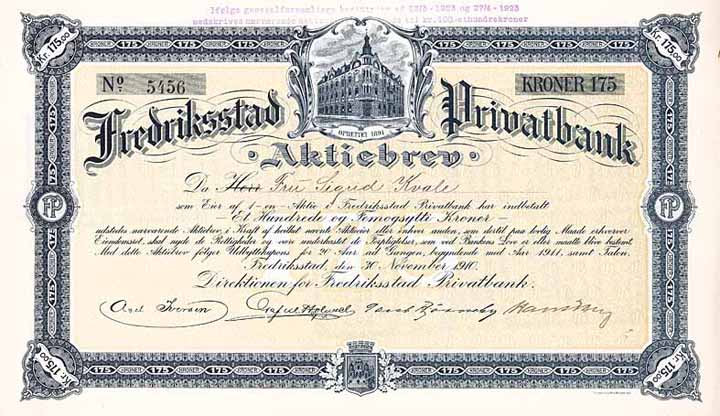 Ifølge generalforsamlings beslutning af 13/3 - 1923 og 27/4 - 1923
nedskrives nærværende til kr. 100 - ethundrekroner
Kr. 175.00
KRONER 175 KRONER 175 KRONER 175 KRONER
Kr. 175.00
No. 5456
KRONER 175
OPRETTET 1891
Fredriksstad Privatbank
Aktiebrev
Da Herr Fru Sigrid Kvale
som Eier af 1-en-Aktie i Fredriksstad Privatbank har indbetalt
Et Hundrede og Femogsytti Kroner
udstedes nærværende Aktiebrev, i Kraft af hvilket nævnte Aktieeier eller enhver anden, som dertil paa lovlig Maade erhverver
Eiendomsret, skal nyde de Rettigheder og være underkastet de Forpligtelser, som ved Bankens Love er eller maatte blive bestemt.
Med dette Aktiebrev følger Udbyttekupons for 20 Aar ad Gangen, begyndende med Aar 1911, samt Talon.
Fredriksstad, den 30 November 1910.
Direktionen for Fredriksstad Privatbank.
Axel Iversen
FP
FP
Kr. 175.00
KRONER 175 KRONER 175 KRONER 175 KRONER
Kr. 175.00